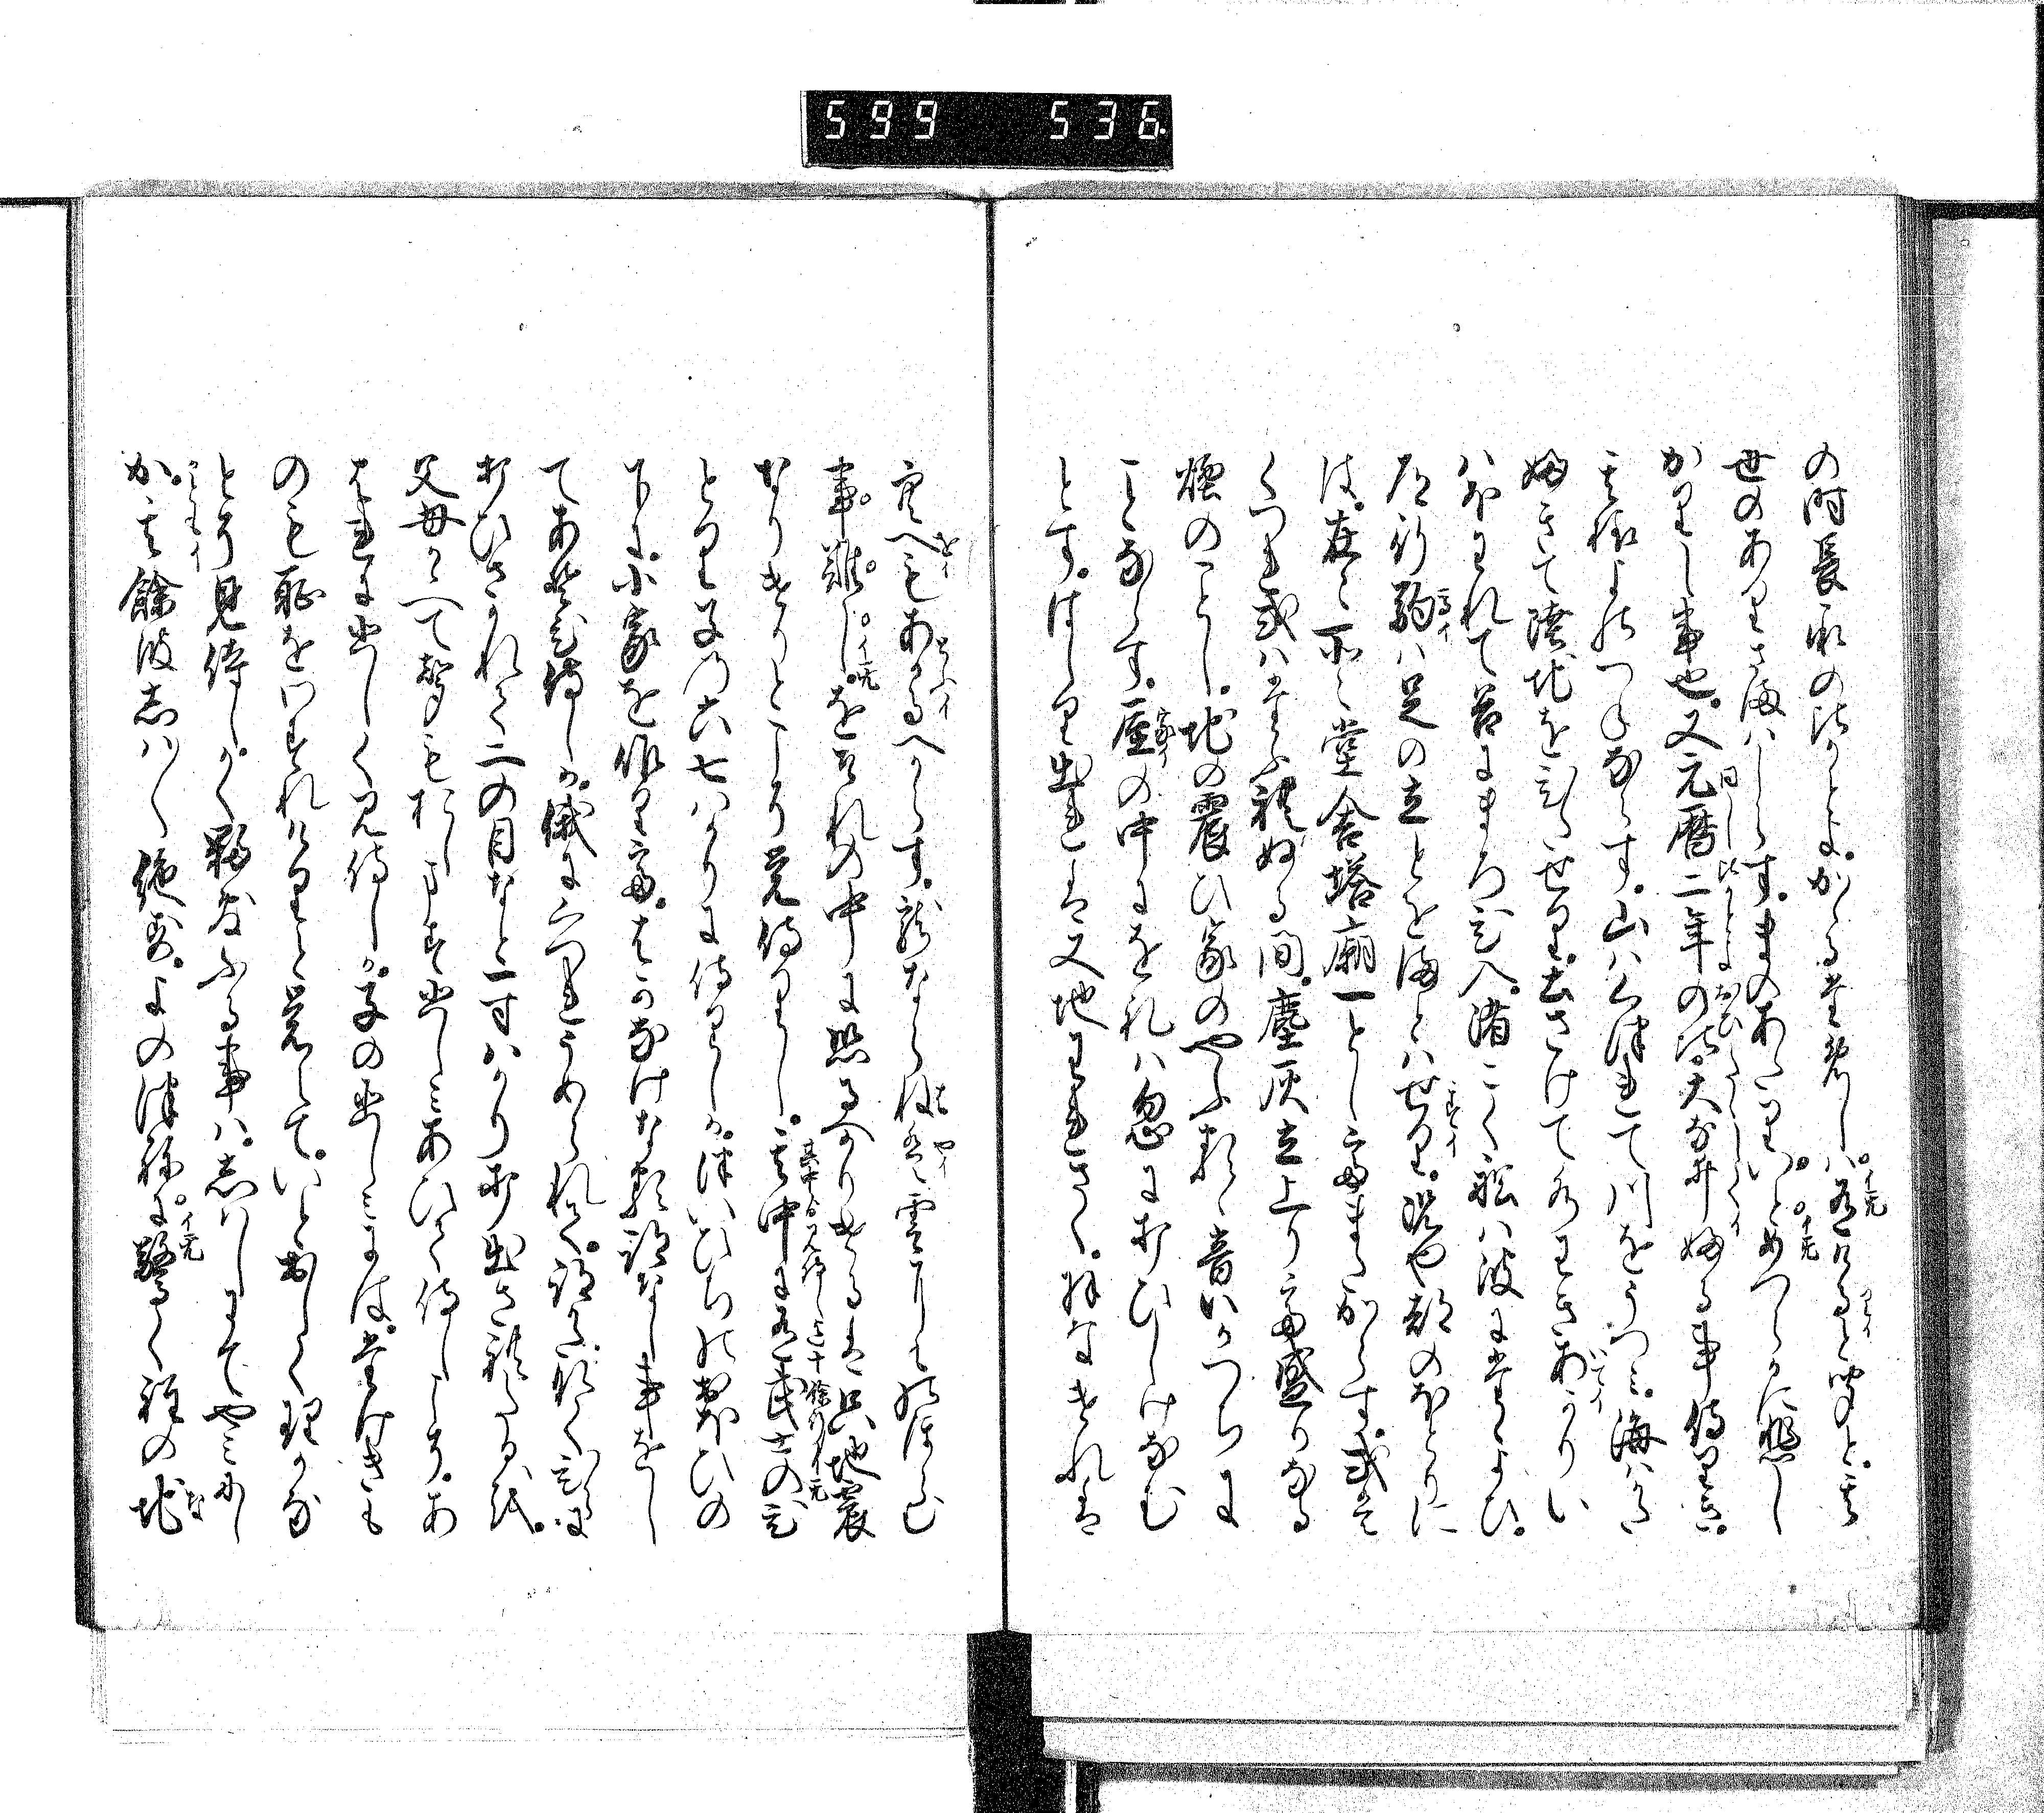 の時長承の比かとよ。かゝるためしハ。有けると聞と。其
世のありさまハしらす。まのあたりいとめつらかに悲し
かりし事也。又元暦二年の比大なゐふる事侍りき。
其様よのつねならす。山ハくつれて川をうつみ。海ハかた
ふきて陸地をひたせり。土さけて水わきあかりい
ハほわれて谷にまろひ入。渚こく船ハ波にたゝよひ。
道行駒ハ足の立とをまとハせり。況や都のほとりに
は。在々所々堂舎塔廟一としてまたからす。或は
くつれ或ハたふれぬる間。塵灰立上りて盛りなる
煙のことし。地の震ひ家のやふるゝ音いかつちに
ことならす。屋の中にをれハ忽に打ひしけなむ
とす。はしり出れは又地われさく。羽なけれは
空へもあかるへからす。龍ならねは雲にものほらむ
事難し。をそれの中に恐るへかりけるは只地震
なりけりとこそ覚侍りし。其中に有武士のひ
とり子の六七ハかりに侍りしか。ついひちのおほひの
下に。小家を作りて。はかなけなる跡なし事をし
てあそひ侍しか。俄にくつれうめられて。跡かたなくひらに
打ひさかれて二の目なと一寸ハかり打出されたるを。
父母かゝへて声もおしますかなしみあひて侍しこそ。あ
はれにかなしく見侍しか。子のかなしみには。たけきも
のも恥をわすれけりと覚えて。いとおしく理かな
とそ見侍し。かく夥敷ふる事ハ。しハしにてやみにし
か。其餘波志ハ〱絶す。よの津ねに驚く程の地